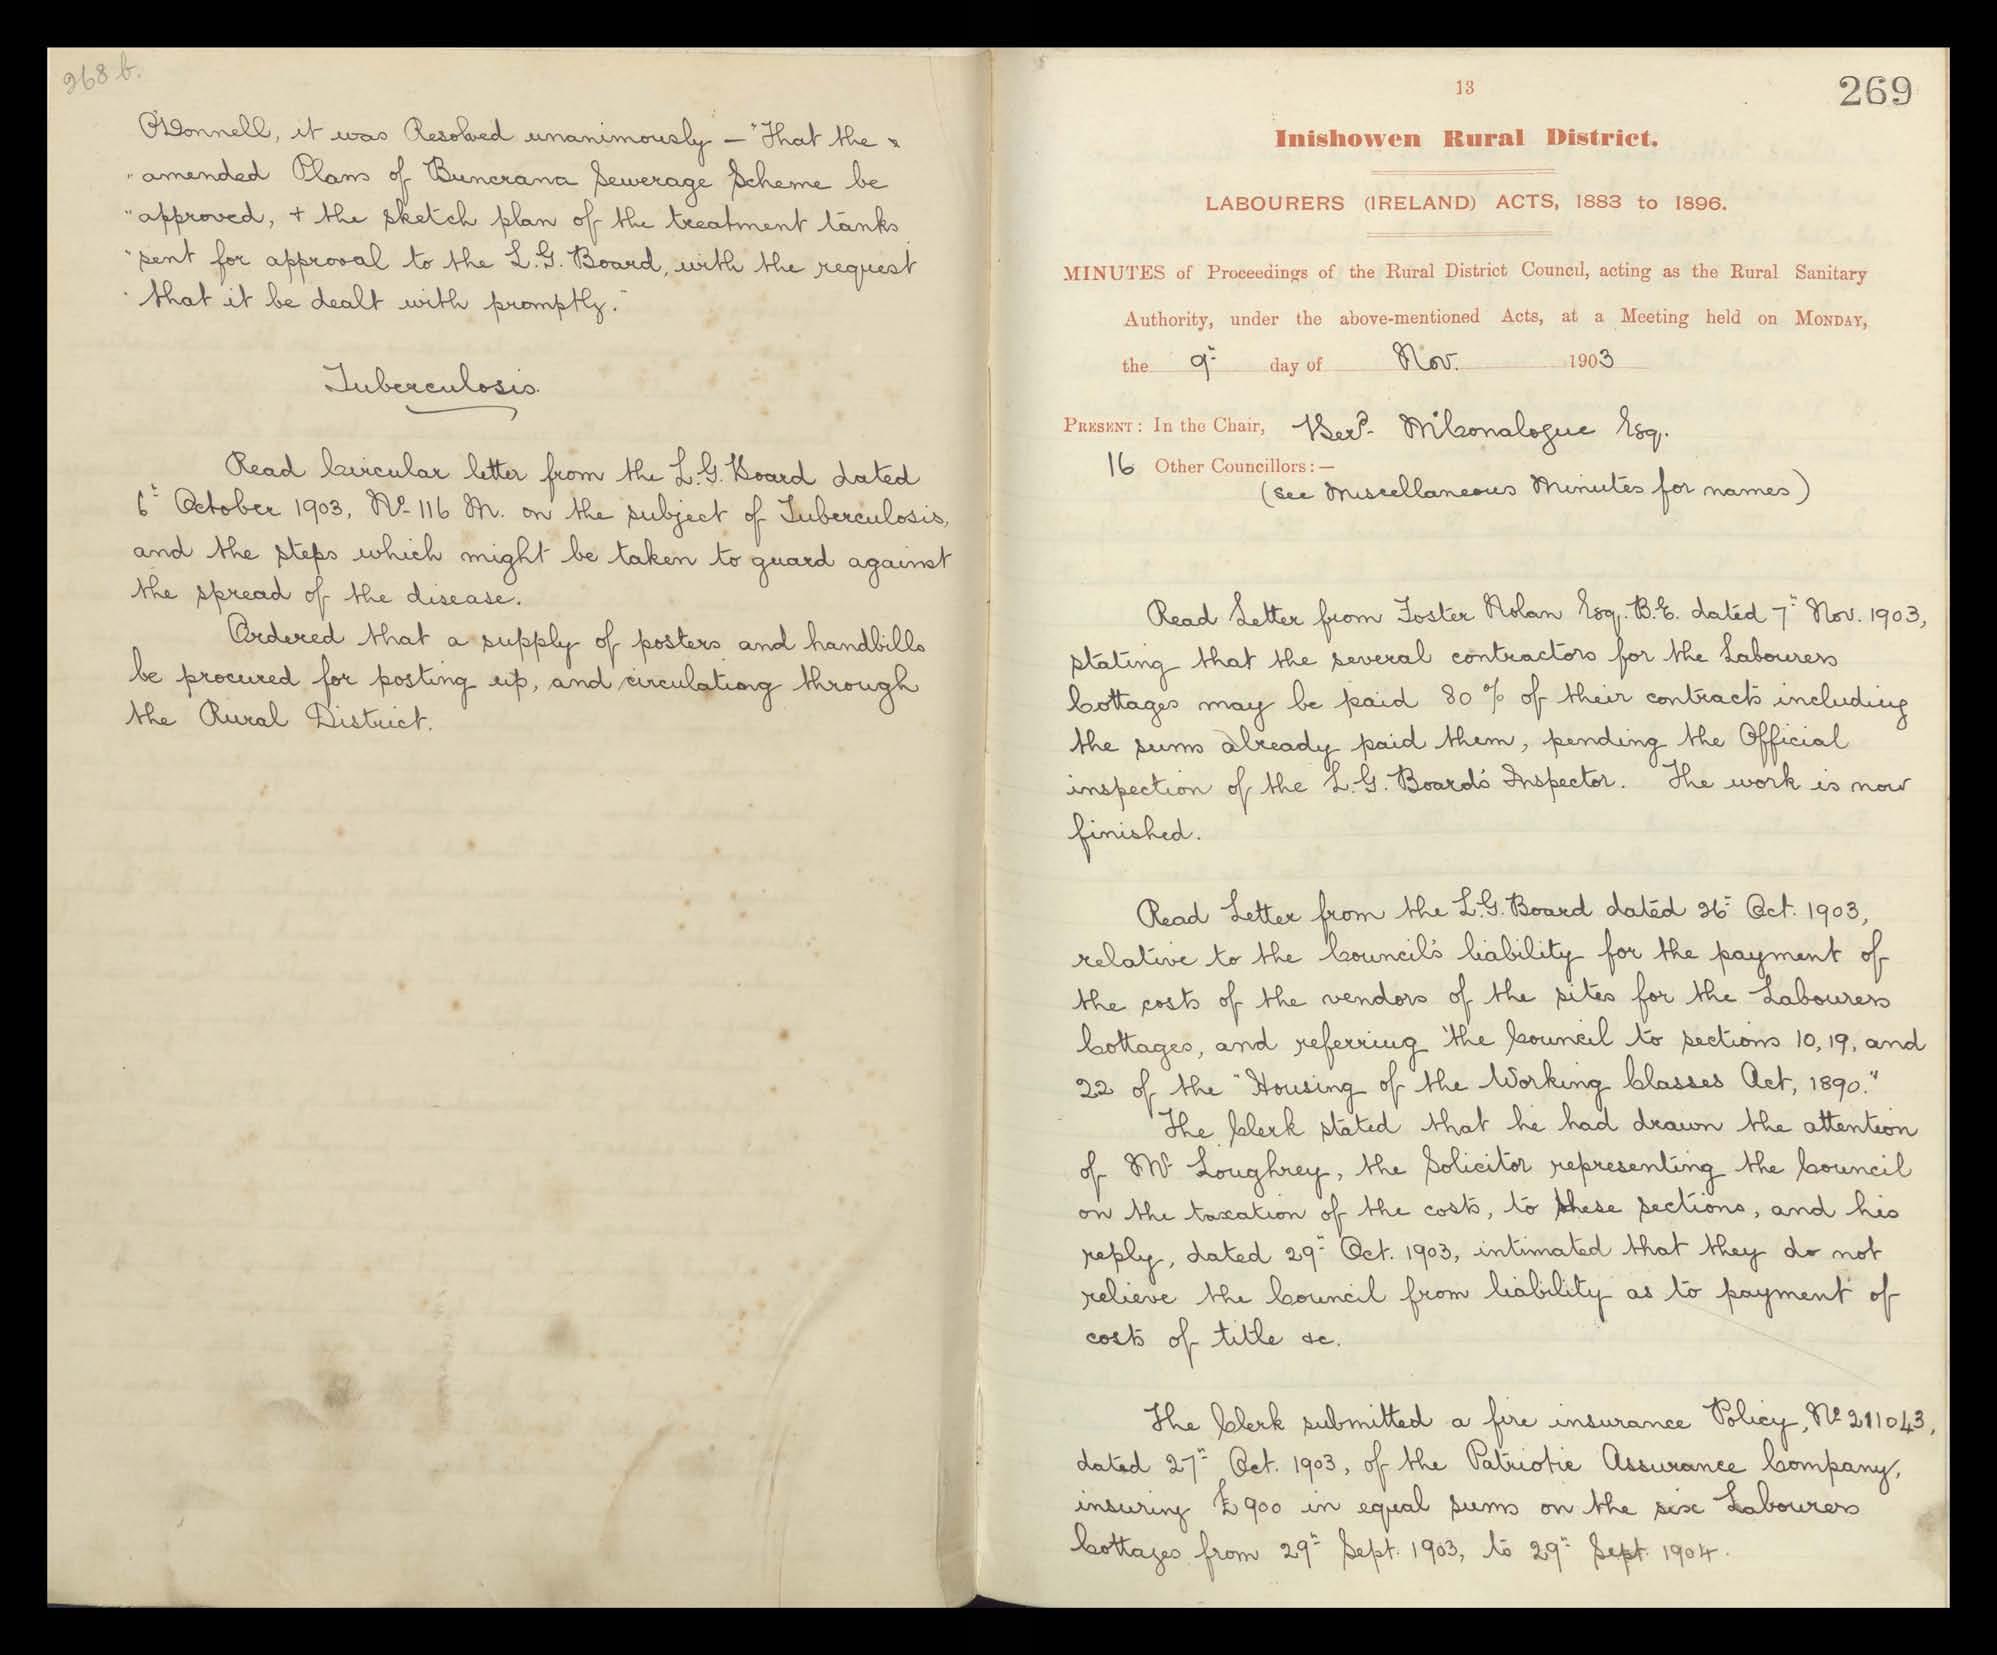 268 b.
O'Donnell, it was Resolved unanimously — "That the
"amended Plans of Buncrana Sewerage Scheme be
"approved, + the sketch plan of the treatment tanks
"sent for approval to the L.G. Board, with the request
"that it be dealt with promptly."
Tuberculosis.
Read Circular letter from the L.G. Board dated
6th October 1903, No 116 M. on the subject of Tuberculosis,
and the steps which might be taken to guard against
the spread of the disease.
Ordered that a supply of posters and handbills
be procured for posting up, and circulationg through
the Rural District.
13
269
Inishowen Rural District.
LABOURERS (IRELAND) ACTS, 1883 to 1896.
MINUTES of Proceedings of the Rural District Council, acting as the Rural Sanitary
Authority, under the above-mentioned Acts, at a Meeting held on MONDAY,
the 9th day of Nov. 1903
PRESENT: In the Chair, Berd. McConalogue Esq.
16 Other Councillors:—
(see Miscellaneous Minutes for names)
Read Letter from Foster Nolan Esq. B.E. dated 7th Nov. 1903,
stating that the several contractors for the Labourers
Cottages may be paid 80% of their contracts including
the sums already paid them, pending the Official
inspection of the L.G. Board's Inspector. The work is now
finished.
Read Letter from the L.G. Board dated 26th Oct. 1903,
relative to the Council's liability for the payment of
the costs of the vendors of the sites for the Labourers
Cottages, and referring the Council to sections 10, 19, and
22 of the "Housing of the Working Classes Act, 1890."
The Clerk stated that he had drawn the attention
of Mr Loughrey, the Solicitor representing the Council
on the taxation of the costs, to these sections, and his
reply, dated 29th Oct. 1903, intimated that they do not
relieve the Council from liability as to payment of
costs of title &c.
The Clerk submitted a fire insurance Policy, No 211043,
dated 27th Oct. 1903, of the Patriotic Assurance Company,
insuring £900 in equal sums on the six Labourers
Cottages from 29th Sept. 1903, to 29th Sept. 1904.